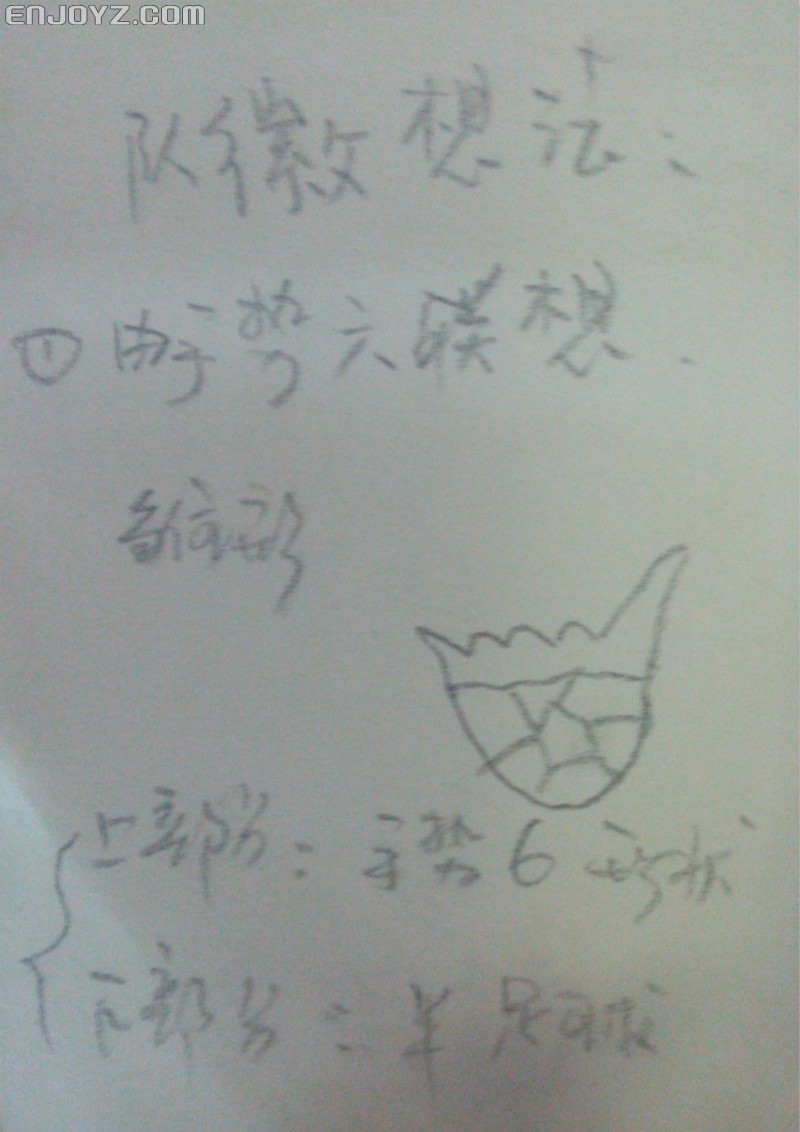 ENJOYZ.COM
队徽想法:
① 由手势六联想.
雏形
上部分: 手势6形状
下部分: 半足球